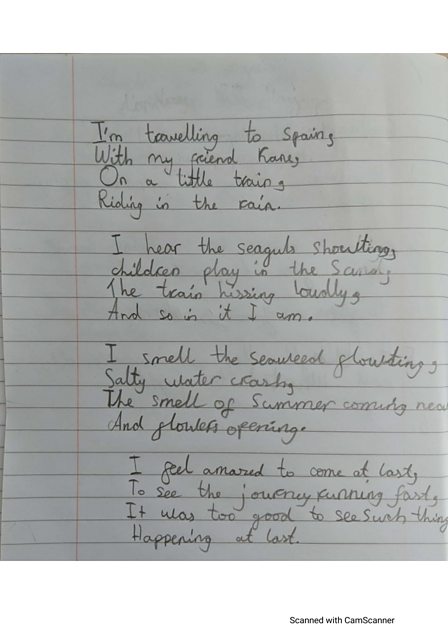 I'm travelling to Spain,
With my friend Kane,
On a little train,
Riding in the rain.
I hear the seaguls shouting,
children play in the Sand,
The train hissing loudly,
And so in it I am.
I smell the seaweed floating,
Salty water crash,
The smell of Summer coming nea
And flowers opening.
I feel amazed to come at last,
To see the journey running fast,
It was too good to see such thing
Happening at last.
Scanned with CamScanner